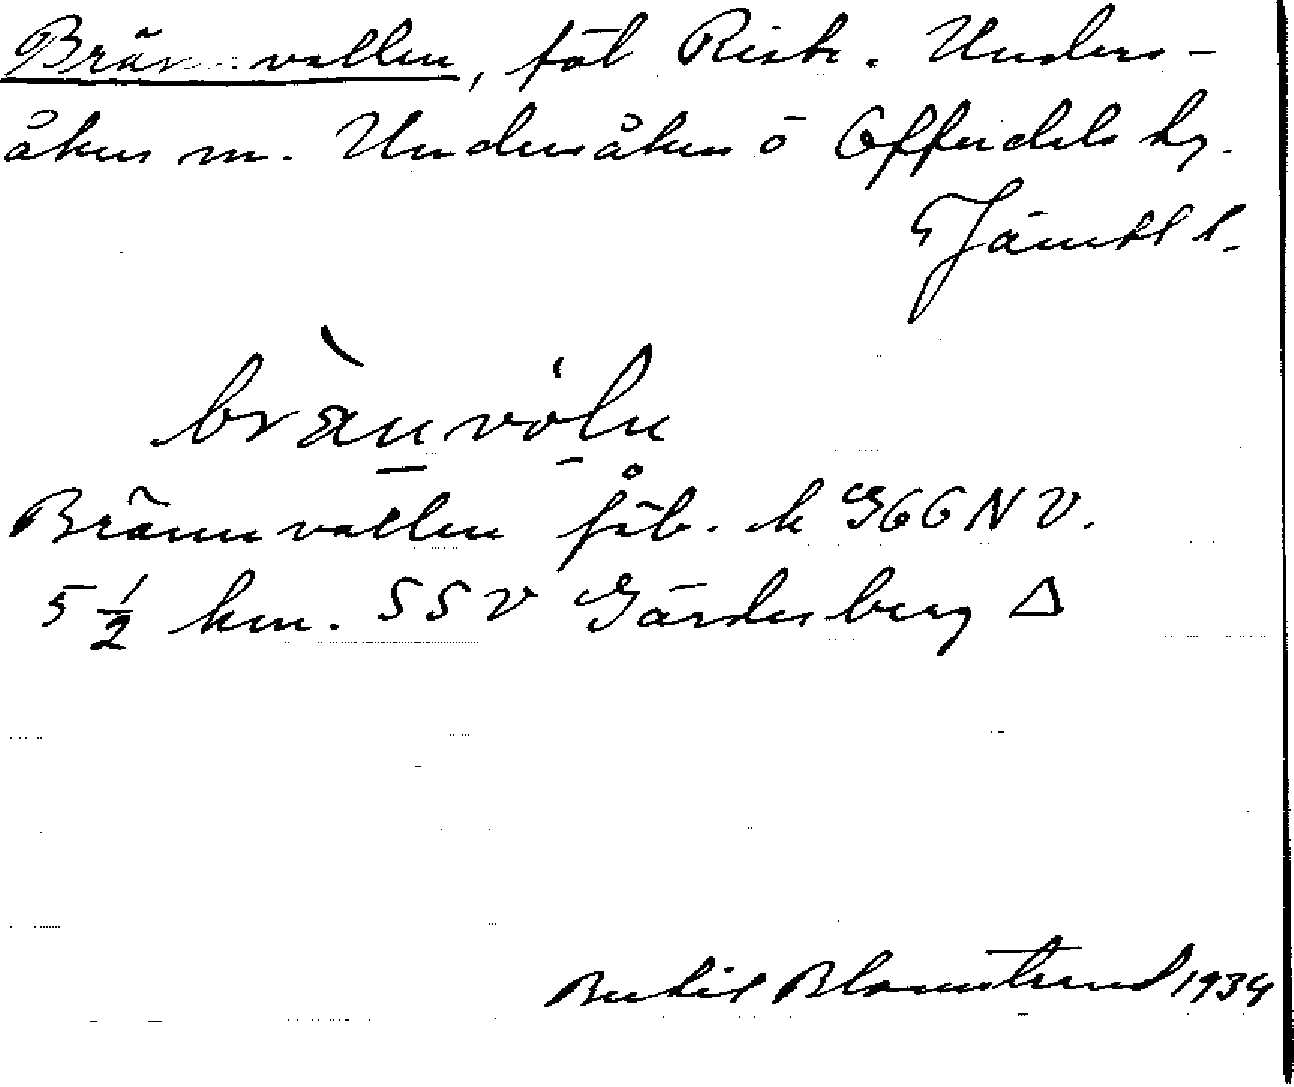 Brännvallen, fäb Rist. Unders-
åkers sn. Undersåkers o Offerdals tg.
Jämtl l.
brä̀nvöln
Brännvallen fäb. k G66NV.
5 1/2 km. SSV Gärdesberg Δ
Bertil Blomstrand 1934